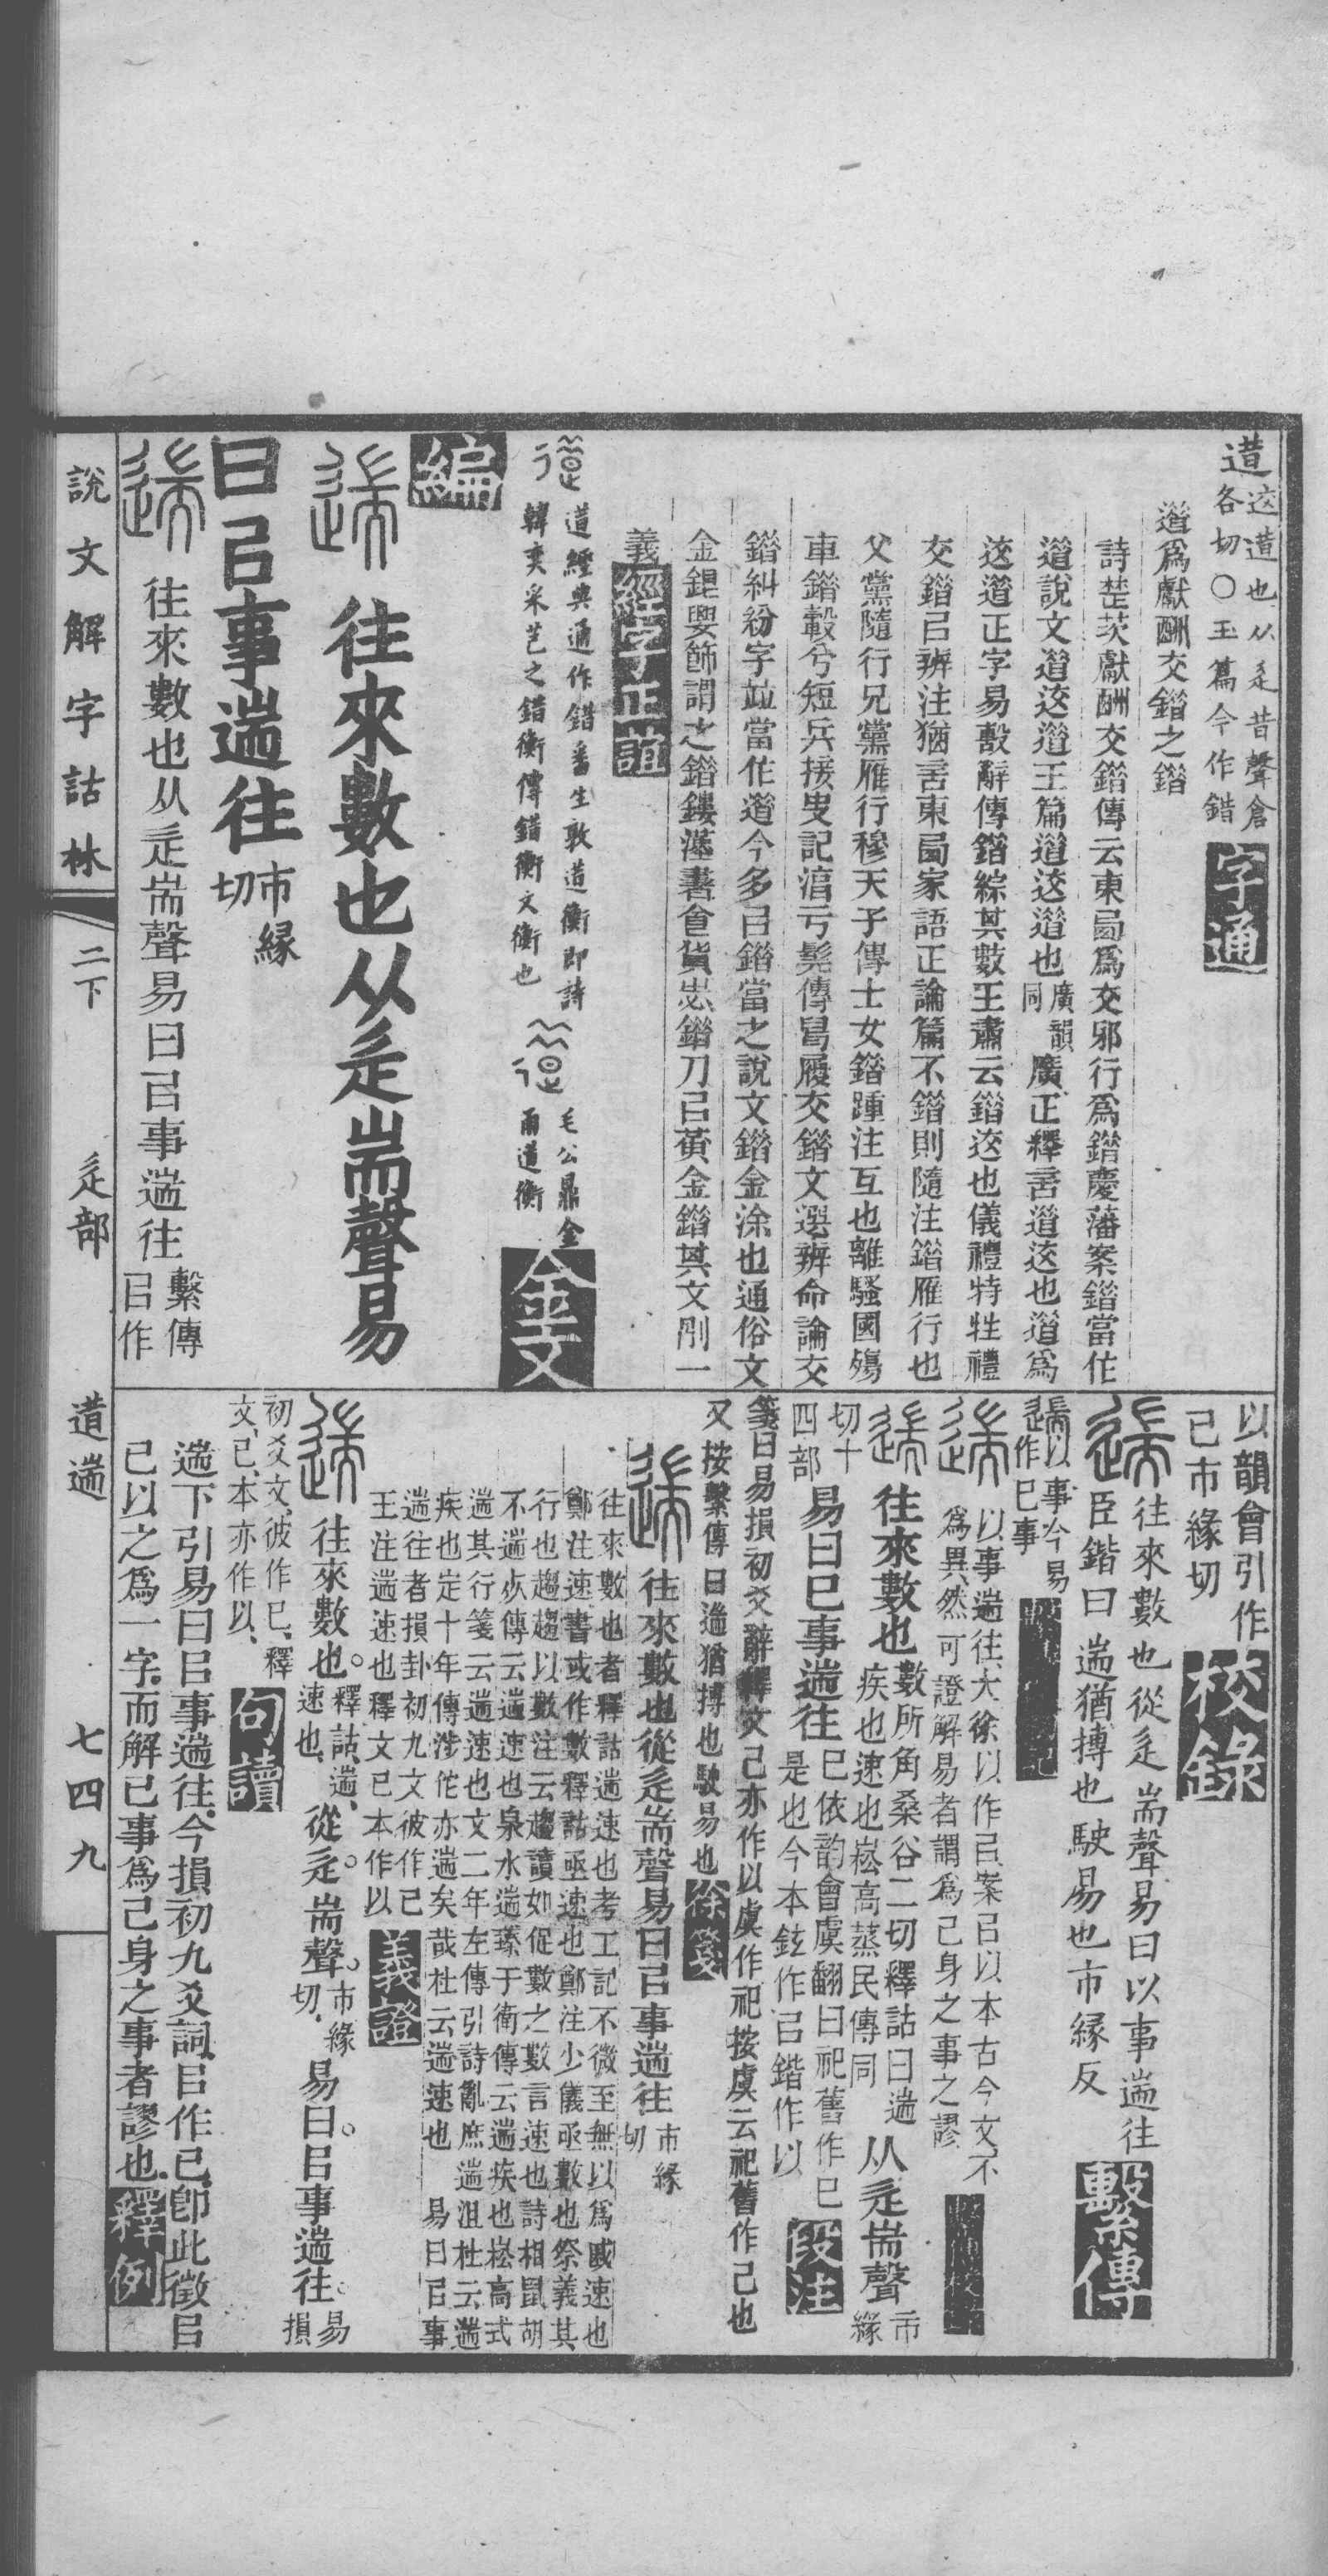 逪 这逪也从辵昔聲倉
各切〇玉篇今作錯 字通
逪爲獻酬交錯之錯
詩楚茨獻酬交錯傳云東西爲交邪行爲錯慶藩案錯當作
逪說文逪这逪玉篇逪这逪也廣韻同廣正釋言逪这也逪爲
这逪正字易繫辭傳錯綜其數王肅云錯这也儀禮特牲禮
交錯㠯辨注猶言東西家語正論篇不錯則隨注錯雁行也
父黨隨行兄黨雁行穆天子傳士女錯踵注互也離騷國殤
車錯轂兮短兵接史記淳于髡傳舄履交錯文選辨命論交
錯糾紛字竝當作逪今多㠯錯當之說文錯金涂也通俗文
金銀要飾謂之錯鏤漢書食貨志錯刀㠯黃金錯其文剛一
義 經字正誼
逪經典通作錯番生敦逪衡卽詩
韓奕采芑之錯衡傳錯衡文衡也
毛公鼎金
甬逪衡 金文
編
遄 往來數也从辵耑聲易
曰㠯事遄往 市緣切
遄 往來數也从辵耑聲易曰㠯事遄往 繫傳㠯作
說文解字詁林 二下 辵部 逪遄 七四九
以韻會引作
已市緣切 校錄
遄 往來數也從辵耑聲易曰以事遄往
臣鍇曰遄猶摶也駛易也市緣反 繫傳
遄 以事今易作巳事
遄 以事遄往大徐以作㠯案㠯以本古今文不
爲異然可證解易者謂爲己身之事之謬
遄 往來數也 數所角桑谷二切釋詁曰遄疾也速也崧高蒸民傳同 从辵耑聲 市緣
切十四部 易曰巳事遄往 巳依韵會虞翻曰祀舊作巳是也今本鉉作㠯鍇作以 段注
箋曰易損初爻辭釋文己亦作以虞作祀按虞云祀舊作己也
又按繫傳曰遄猶摶也駛易也 徐箋
遄 往來數也從辵耑聲易曰㠯事遄往 市緣切
往來數也者釋詁遄速也考工記不微至無以爲戚速也
鄭注速書或作數釋詁亟速也鄭注少儀亟數也祭義其
行也趨趨以數注云趨讀如促數之言速也詩相鼠胡
不遄死傳云遄速也泉水遄臻于衛傳云遄疾也崧高式
遄其行箋云遄速也文二年左傳引詩亂庶遄沮杜云遄
疾也定十年傳涉佗亦遄矣哉杜云遄速也 易曰㠯事
遄往者損卦初九文彼作已
王注遄速也釋文已本作以 義證
遄 往來數也。釋詁遄、速也、從辵。耑聲。市緣切、易曰。㠯事遄往。易損
初爻文、彼作已、釋文、已、本亦作以、 句讀
遄下引易曰㠯事遄往、今損初九爻詞、㠯作已、卽此徵㠯
已以之爲一字、而解已事爲己身之事者謬也、 釋例